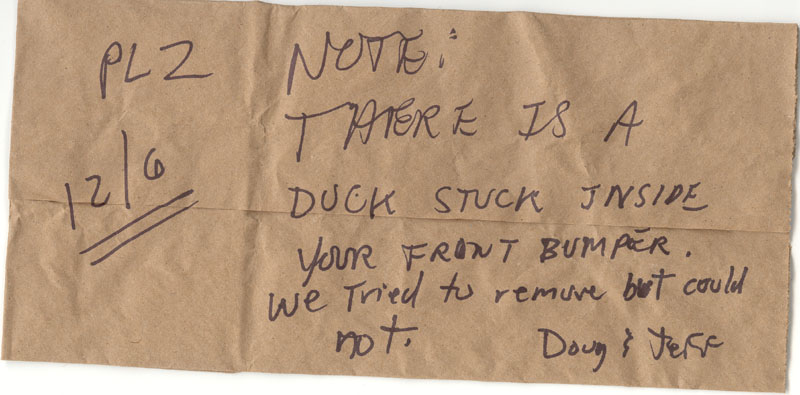 PLZ
12/6
NOTE:
THERE IS A
DUCK STUCK INSIDE
YOUR FRONT BUMPER.
We Tried to remove but could
not.
Doug & Jeff